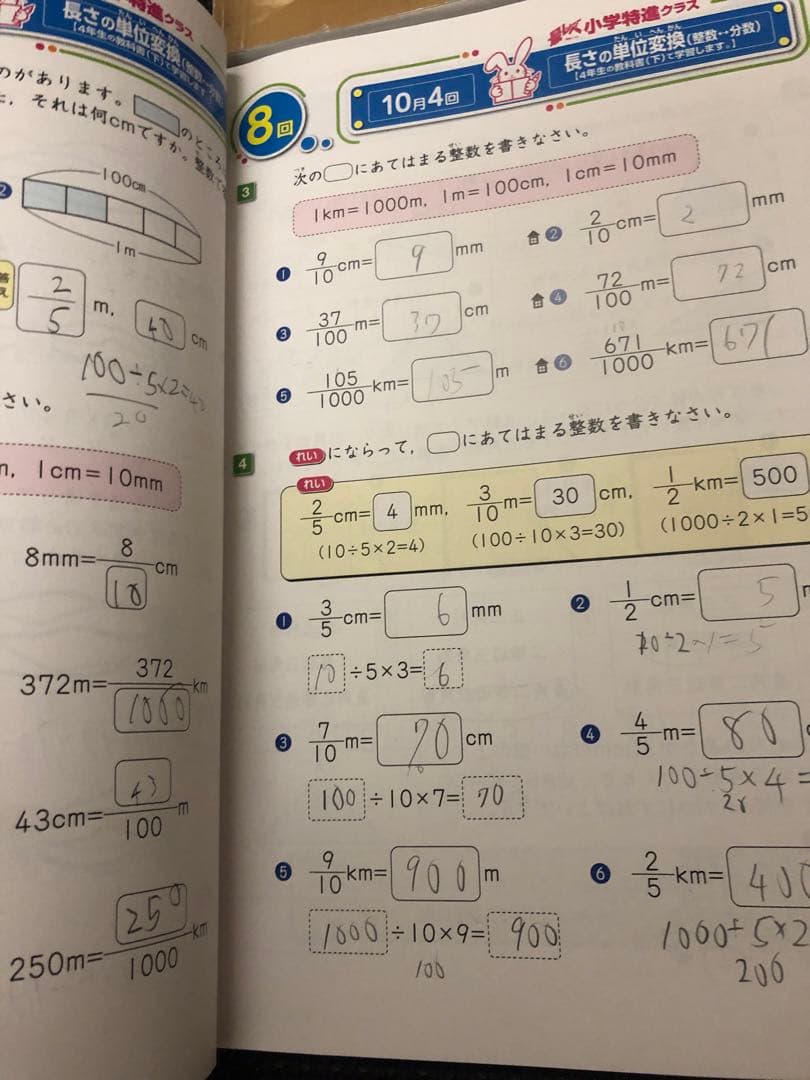 特進クラス
長さの単位変換(整数↔分数)
【4年生の教科書(下)で学習します。】
のがあります。 のところ
それは何cmですか。整数で
2
100cm
1m
答え
2/5 m, 40 cm
100÷5×2=40
20
さい。
m, 1cm=10mm
8mm=8/10 cm
372m=372/1000 km
43cm=43/100 m
250m=250/1000 km
小学特進クラス
長さの単位変換(整数↔分数)
【4年生の教科書(下)で学習します。】
8回
10月4回
3 次の□にあてはまる整数を書きなさい。
1km=1000m, 1m=100cm, 1cm=10mm
❶ 9/10 cm= 9 mm
❷ 2/10 cm= 2 mm
❸ 37/100 m= 37 cm
❹ 72/100 m= 72 cm
❺ 105/1000 km= 105 m
❻ 671/1000 km= 671
4 れいにならって,□にあてはまる整数を書きなさい。
れい
2/5 cm= 4 mm, 3/10 m= 30 cm, 1/2 km= 500
(10÷5×2=4) (100÷10×3=30) (1000÷2×1=5
❶ 3/5 cm= 6 mm
10÷5×3=6
❷ 1/2 cm= 5
10÷2×1=5
❸ 7/10 m= 70 cm
100÷10×7=70
10
❹ 4/5 m= 80
100÷5×4=
❺ 9/10 km= 900 m
1000÷10×9=900
100
❻ 2/5 km= 400
1000÷5×2
200